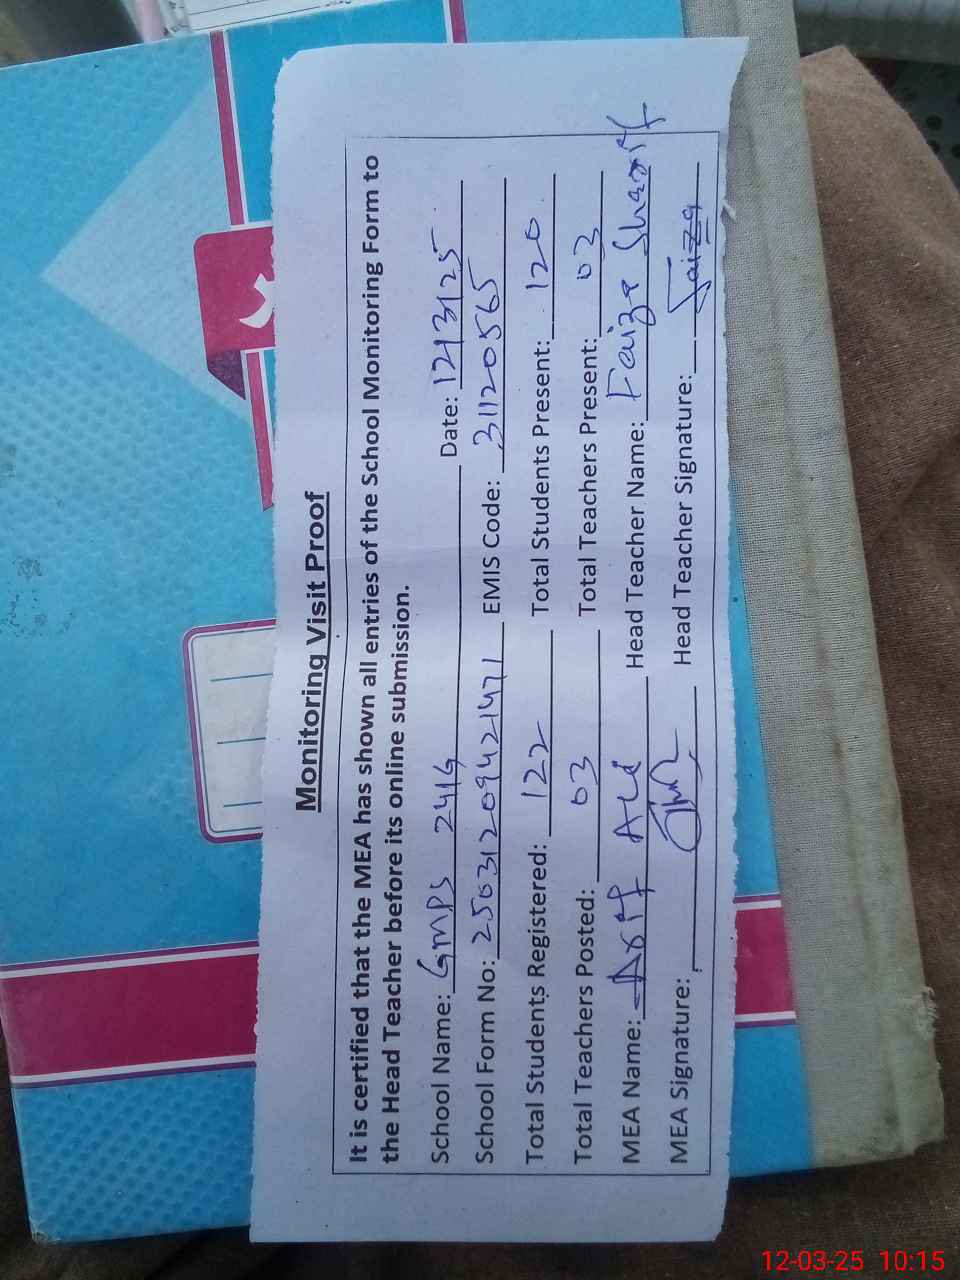 Monitoring Visit Proof
It is certified that the MEA has shown all entries of the School Monitoring Form to
the Head Teacher before its online submission.
School Name: GMPS 241G Date: 12/3/25
School Form No: 25031209421471 EMIS Code: 31120565
Total Students Registered: 122 Total Students Present: 120
Total Teachers Posted: 03 Total Teachers Present: 03
MEA Name: Arif Ali Head Teacher Name: Faiza Sharif
MEA Signature: Head Teacher Signature: Faiza
12-03-25 10:15